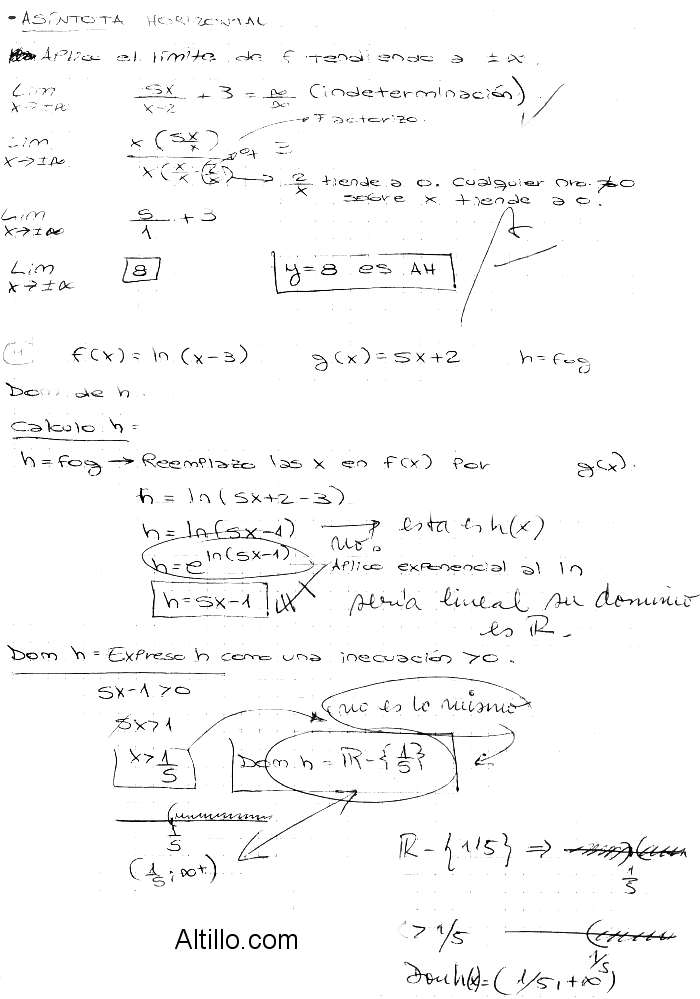 • ASÍNTOTA HORIZONTAL
Aplico el límite de f tendiendo a ±∞.
Lim x→±∞ 5x/x-2 + 3 = ∞/∞ (indeterminación)
→ Factorizo.
Lim x→±∞ x(5x/x) / x(x/x - 2/x) + 3
→ 2/x tiende a 0. Cualquier nro. ≠0
sobre x tiende a 0.
Lim x→±∞ 5/1 + 3
Lim x→±∞ 8 y=8 es AH
f(x)=ln(x-3) g(x)=5x+2 h=fog
Dom de h.
Calculo h=
h=fog → Reemplazo las x en f(x) por g(x).
h=ln(5x+2-3)
h=ln(5x-1) → esta es h(x)
no.
h=e^ln(5x-1) Aplico exponencial al ln
h=5x-1 sería lineal su dominio
es ℝ.
Dom h = Expreso h como una inecuación >0.
5x-1>0 no es lo mismo
5x>1
x>1/5 Dom h = ℝ-{1/5}
1/5
(1/5; ∞+)
ℝ-{1/5} ⇒
1/5
> 1/5
1/5
Dom h(x)=(1/5, +∞)
Altillo.com